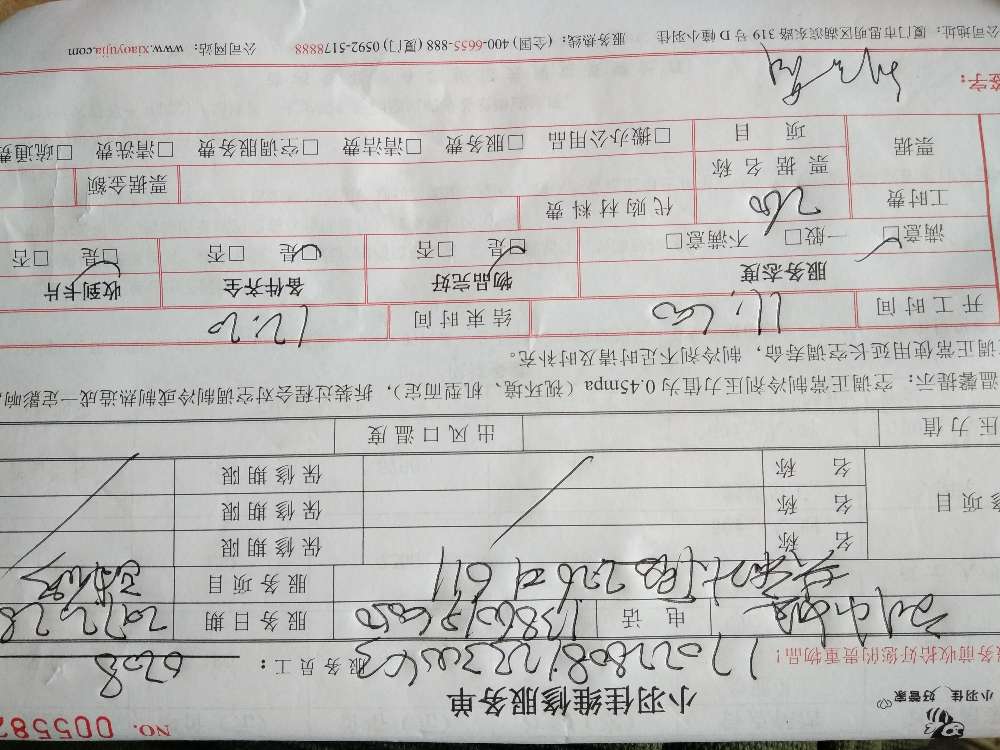 小羽佳 好管家
NO. 005582
小羽佳维修服务单
务前收拾好您的贵重物品!
服务员工: 6208
电话
服务日期
服务项目
修项目
名称 保修期限
名称 保修期限
名称 保修期限
压力值 出风口温度
温馨提示:空调正常制冷剂压力值为0.45mpa(视环境、机型而定),拆装过程会对空调制冷或制热造成一定影响,
调正常使用延长空调寿命,制冷剂不足时请及时补充。
开工时间 结束时间 12.20
服务态度 物品完好 备件齐全 收到卡片
满意□ 一般□ 不满意□ □是 □否 □是 □否 □是 □否
工时费 260 代购材料费
票据 票据名称 票据金额
项目 □搬办公用品 □服务费 □清洁费 □空调服务费 □清洗费 □疏通费
签字:
公司地址:厦门市思明区湖滨东路319号D幢小羽佳 服务热线:(全国)400-6655-888(厦门)0592-5178888 公司网站:www.xiaoyujia.com